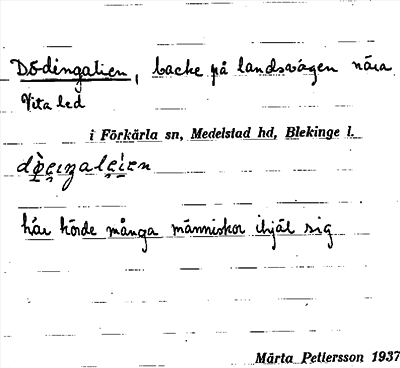 Dödingalien, backe på landsvägen nära
Vita led
i Förkärla sn, Medelstad hd, Blekinge l.
här körde många människor ihjäl sig
Märta Petlersson 1937